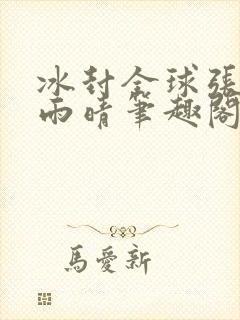 冰封全球張
雨晴筆趣閣
馬愛新